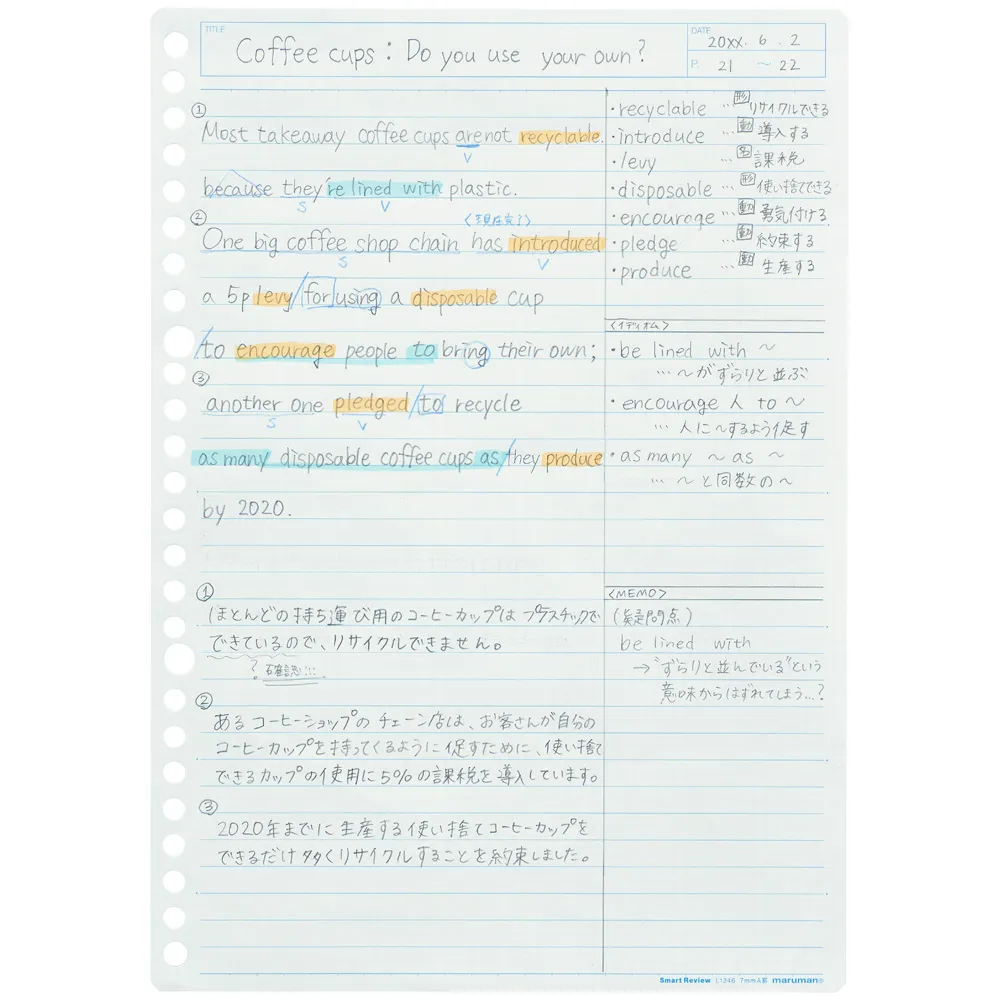 TITLE
Coffee cups : Do you use your own?
DATE
20XX. 6. 2
P. 21 ~ 22
①
Most takeaway coffee cups are not recyclable.
V
because they're lined with plastic.
S V
② <現在完了>
One big coffee shop chain has introduced
S V
a 5p levy/for using a disposable cup
/to encourage people to bring their own;
③
another one pledged/to recycle
S V
as many disposable coffee cups as/they produce
by 2020.
①
ほとんどの持ち運び用のコーヒーカップはプラスチックで
できているので、リサイクルできません。
? 確認!!!
②
あるコーヒーショップのチェーン店は、お客さんが自分の
コーヒーカップを持ってくるように促すために、使い捨て
できるカップの使用に5%の課税を導入しています。
③
2020年までに生産する使い捨てコーヒーカップを
できるだけ多くリサイクルすることを約束しました。
・recyclable … 形 リサイクルできる
・introduce … 動 導入する
・levy … 名 課税
・disposable … 形 使い捨てできる
・encourage … 動 勇気付ける
・pledge … 動 約束する
・produce … 動 生産する
<イディオム>
・be lined with ~
… ~がずらりと並ぶ
・encourage 人 to ~
… 人に~するよう促す
・as many ~ as ~
… ~と同数の~
<MEMO>
(疑問点)
be lined with
→"ずらりと並んでいる"という
意味からはずれてしまう…?
Smart Review L1246 7mmA罫 maruman®